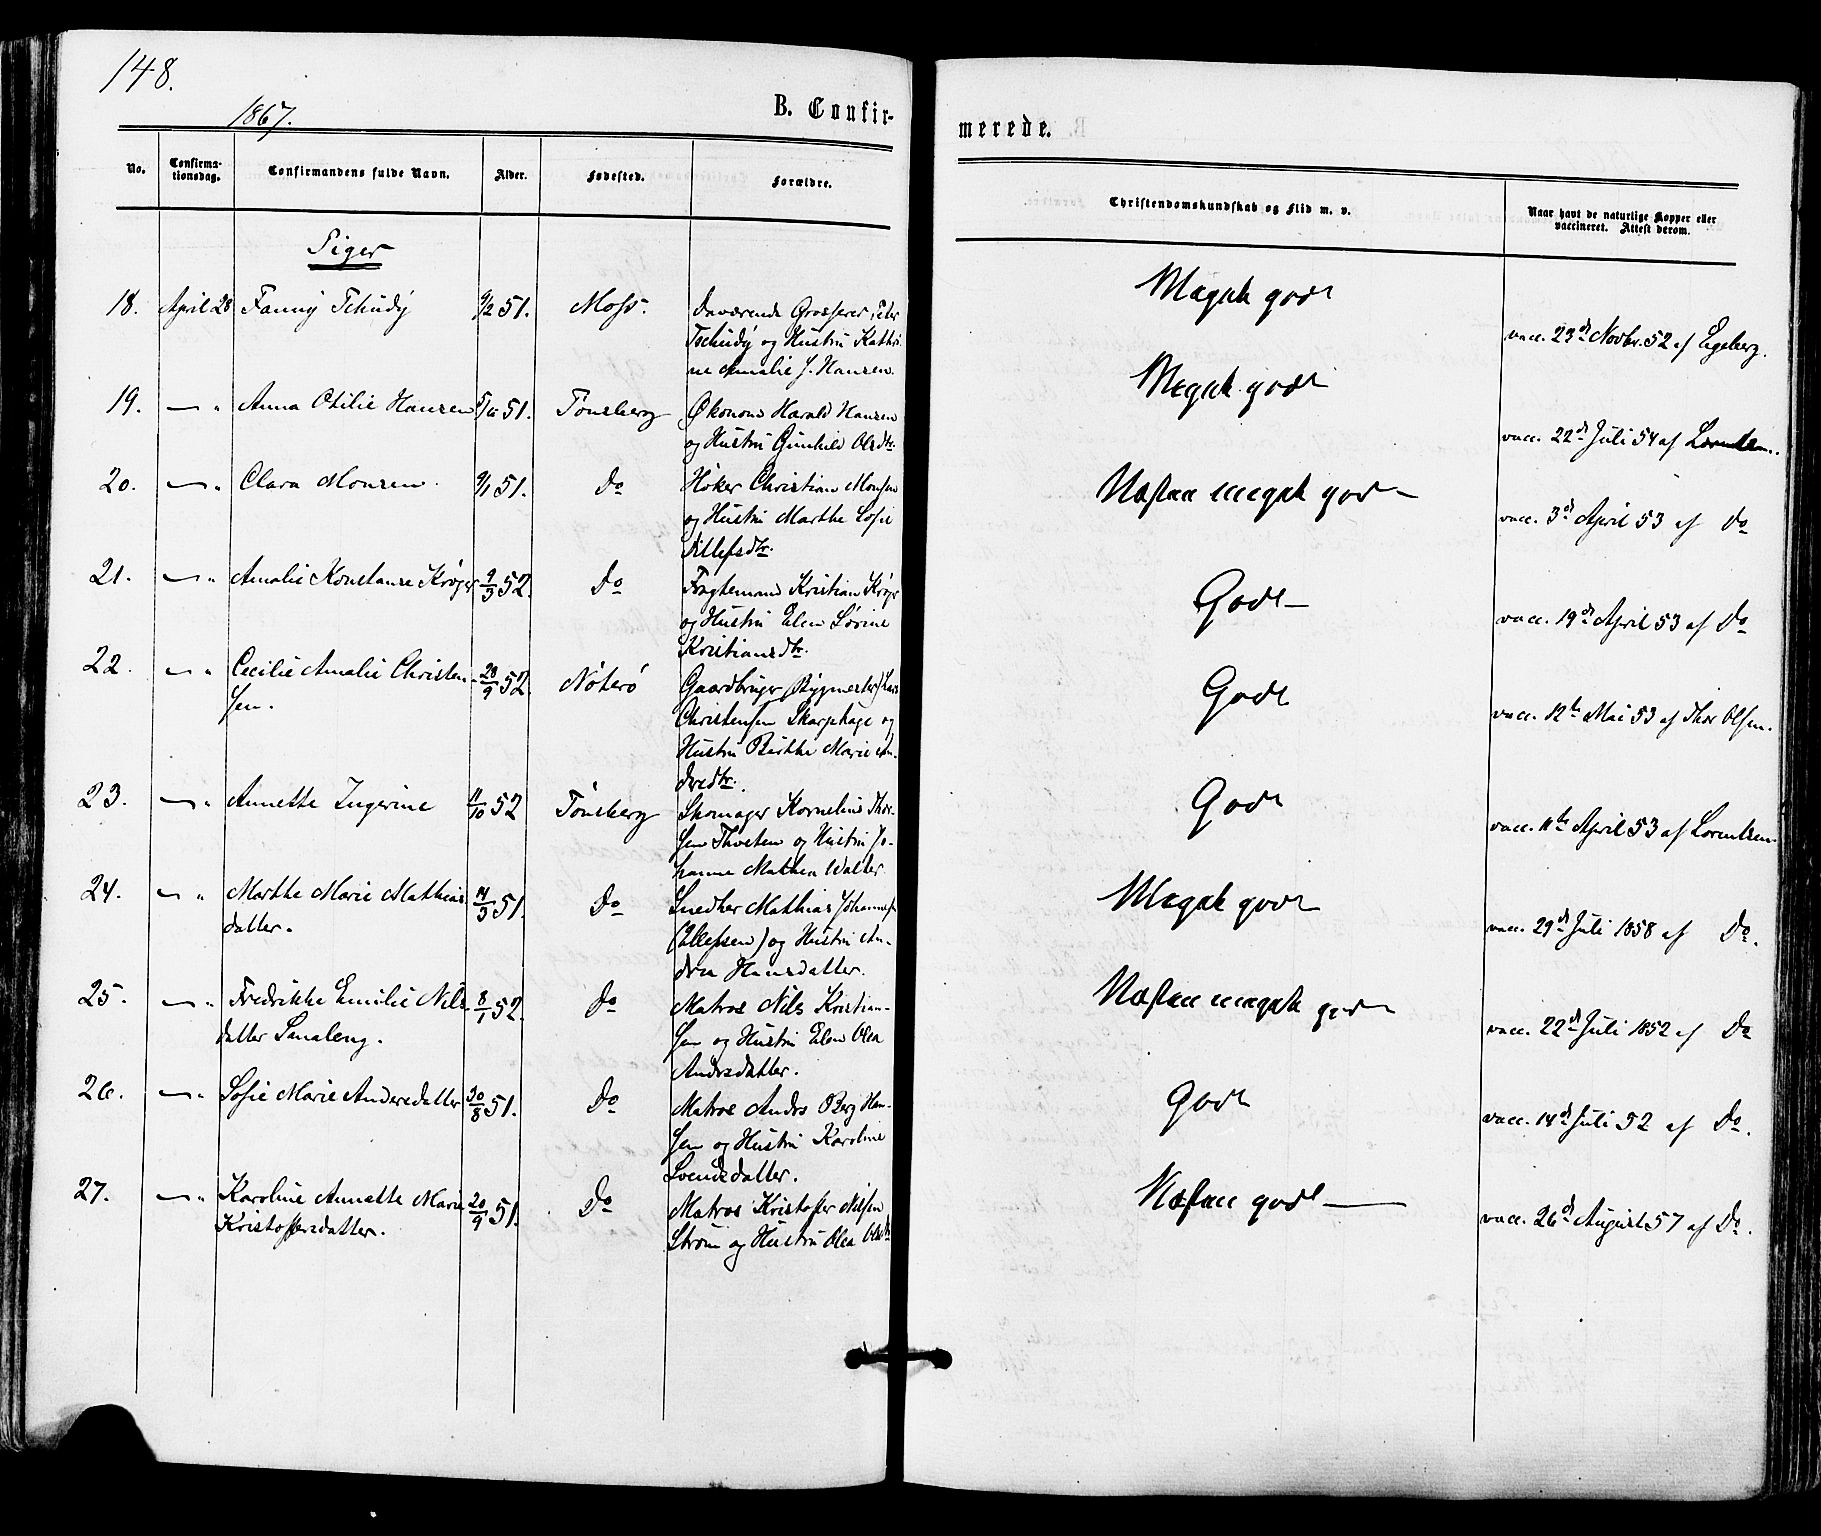 148.
1867.
B. Confir-
merede.
No.
Confirma-
tionsdag.
Confirmandens fulde Navn.
Alder.
Fødested.
Forældre.
Christendomskundskab og Flid m. v.
Naar havt de naturlige Kopper eller
vaccineret. Attest derom.
Piger
18. April 28 Fanny Tschudy 9/2 51. Moss. Daværende Grosserer Peter
Tschudy og Hustru Kathri-
ne Amalie J. Hansen.
Meget godt
vacc. 23d Novbr. 52 af Egeberg.
19. — " Anna Otilie Hansen 51. Tønsberg Økonom Harald Hansen
og Hustru Gunhild Olsdtr.
Meget godt
vacc. 22d Juli 54 af Lorentzen.
20. — " Clara Monsen. 9/1 51. Do Høker Christian Monsen
og Hustru Marthe Sofie
Ellefsdtr.
Næsten meget godt
vacc. 3d April 53 af Do
21. — " Amalie Konstanse Krøger 9/3 52. Do Fragtemand Kristian Krøger
og Hustru Elen Sørine
Kristiansdtr.
Godt
vacc. 19d April 53 af Do
22. — " Cecilie Amalie Christen-
sen. 28/9 52. Nøterø Gaardbruger (Bygmester) Lars
Christensen Skarphage og
Hustru Birthe Marie An-
dredtr.
Godt
vacc. 12te Mai 53 af Thor Olsen.
23. — " Annette Ingerine 11/10 52 Tønsberg Skomager Kornelius Thor-
sen Thveten og Hustru Jo-
hanne Mathea Walter
Godt
vacc. 11te April 53 af Lorentzen.
24. — " Marthe Marie Mathias-
datter. 14/3 51. Do Snedker Mathias Johannes
(Ellefsen) og Hustru An-
drea Hansdatter.
Meget godt
vacc. 29d Juli 1858 af Do.
25. — " Fredrikke Emilie Nils-
datter Smaleng. 8/1 52. Do Matros Nils Kristian-
sen og Hustru Elen Olea
Andrsdatter.
Næsten meget godt
vacc. 22d Juli 1852 af Do
26. — " Sofie Marie Andersdatter 30/8 51. Do Matros Andrs Berg Han-
sen og Hustru Karoline
Svendsdatter.
Godt
vacc. 14d Juli 52 af Do.
27. — " Karoline Annette Marie
Kristoffersdatter. 20/9 51. Do Matros Kristoffer Nilsen
Strøm og Hustru Olea Olsdtr
Næsten godt
vacc. 26d August 57 af Do.